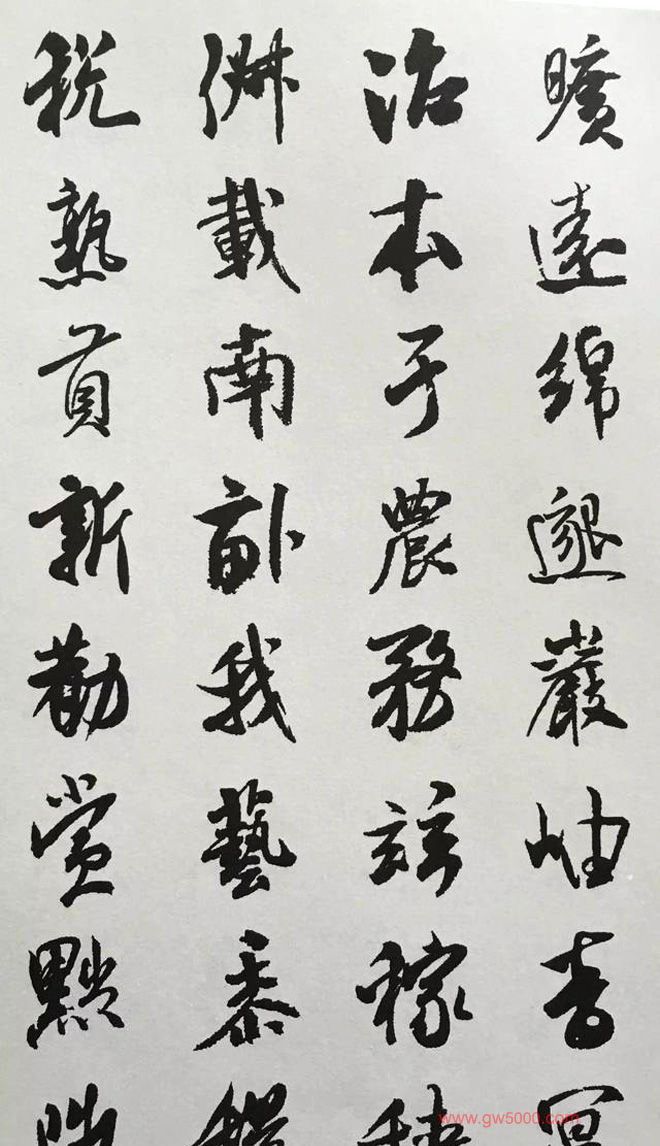 曠遠綿邈巖岫杳
治本于農務茲稼
俶載南畝我藝黍
稅熟貢新勸賞黜
www.gw5000.com